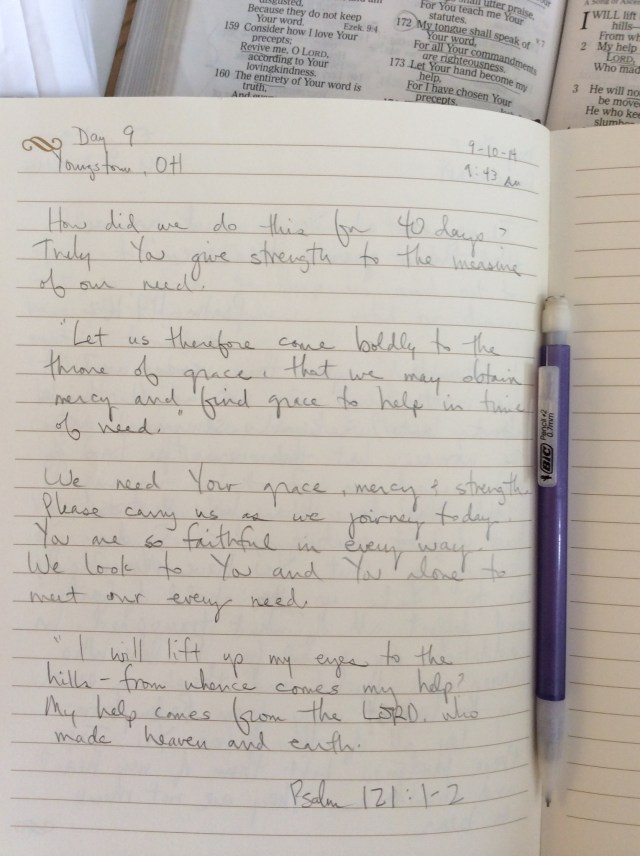 disgusted,
Because they do not keep
Your word.
Ezek. 9:4
159 Consider how I love Your
precepts;
Revive me, O LORD,
according to Your
lovingkindness.
160 The entirety of Your word is
truth,
shall utter praise,
For You teach me Your
statutes.
172 My tongue shall speak of
Your word,
For all Your commandments
are righteousness.
173 Let Your hand become my
help,
For I have chosen Your
precepts.
I WILL lift
hills—
From wh
2 My help
LORD,
Who mad
3 He will no
be move
He who kee
slumbe
Day 9
Youngstown, OH
9-10-14
9:43 am
How did we do this for 40 days?
Truly You give strength to the measure
of our need.
"Let us therefore come boldly to the
throne of grace, that we may obtain
mercy and find grace to help in time
of need."
We need Your grace, mercy & strength.
Please carry us as we journey today.
You are so faithful in every way.
We look to You and You alone to
meet our every need.
"I will lift up my eyes to the
hills - from whence comes my help?
My help comes from the LORD, who
made heaven and earth.
Psalm 121:1-2
BIC Pencil #2
0.7mm